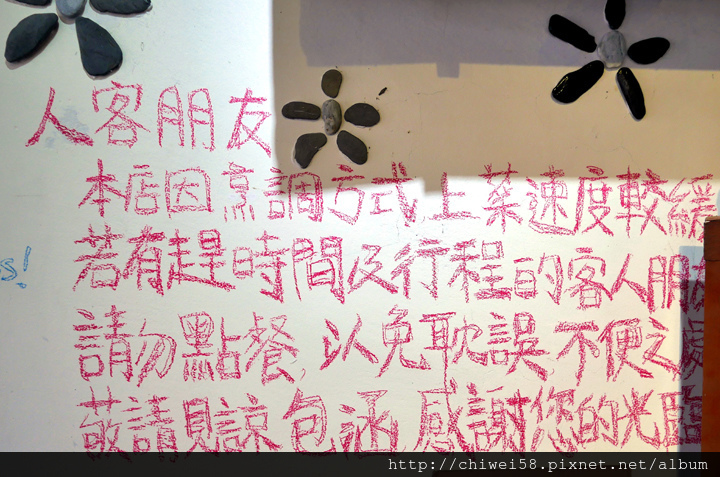 人客朋友
本店因烹調方式上菜速度較緩
若有趕時間及行程的客人朋友
請勿點餐,以免耽誤不便之處
敬請見諒包涵,感謝您的光臨
s!
http://chiwei58.pixnet.net/album